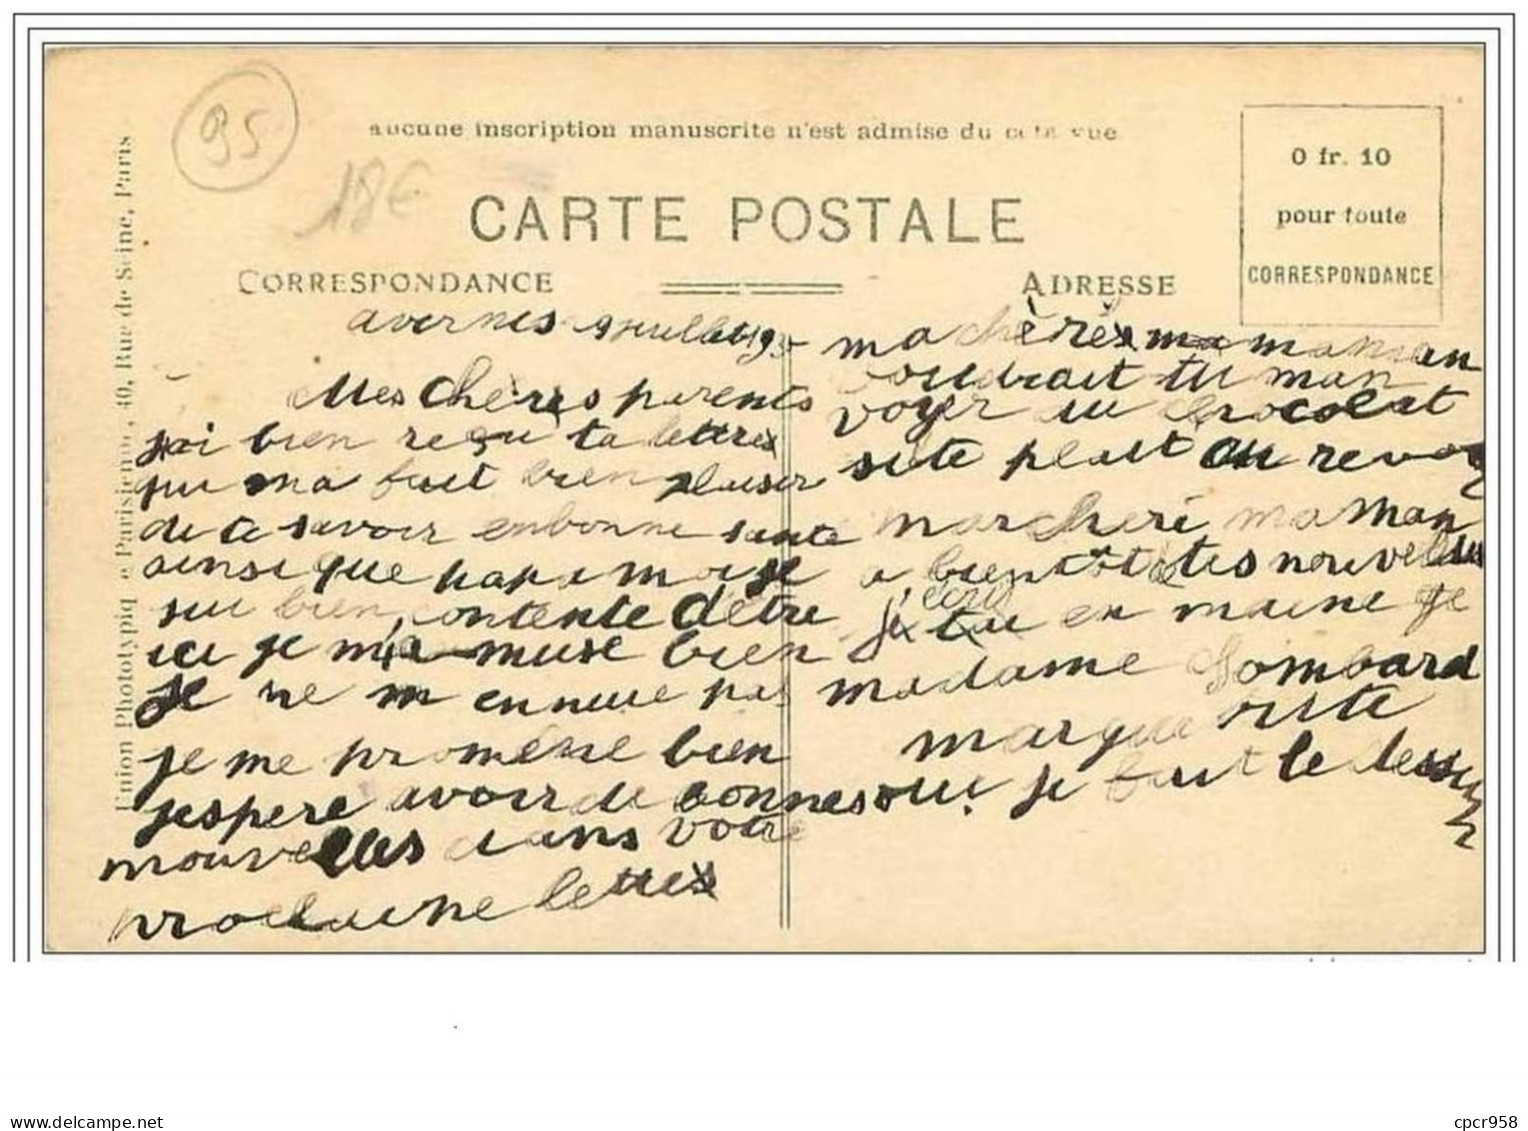 95
18€
aucune inscription manuscrite n'est admise du côté vue.
CARTE POSTALE
0 fr. 10
pour toute
CORRESPONDANCE
CORRESPONDANCE
ADRESSE
Union Phototypique Parisienne, 40, Rue de Seine, Paris
avernes 9
Mes chères parents
jai bien reçu ta lettre
qui ma fait bien plaisir
de te savoir en bonne sante
ainsi que papa moi je
sui bien contente d'être
ici je m'a muse bien
je ne m ennuie pas
je me promène bien
jespere avoir de bonnes
nouvelles dans votre
prochaine lettre
ma chère maman
voudrait tu man
voyer du chocolat
site plait au revoir
mar chere maman
a bientot de tes nouvelles
j'écris en maine je
madame Lombard
marguerite
oui je fait le dessin
cpcr958